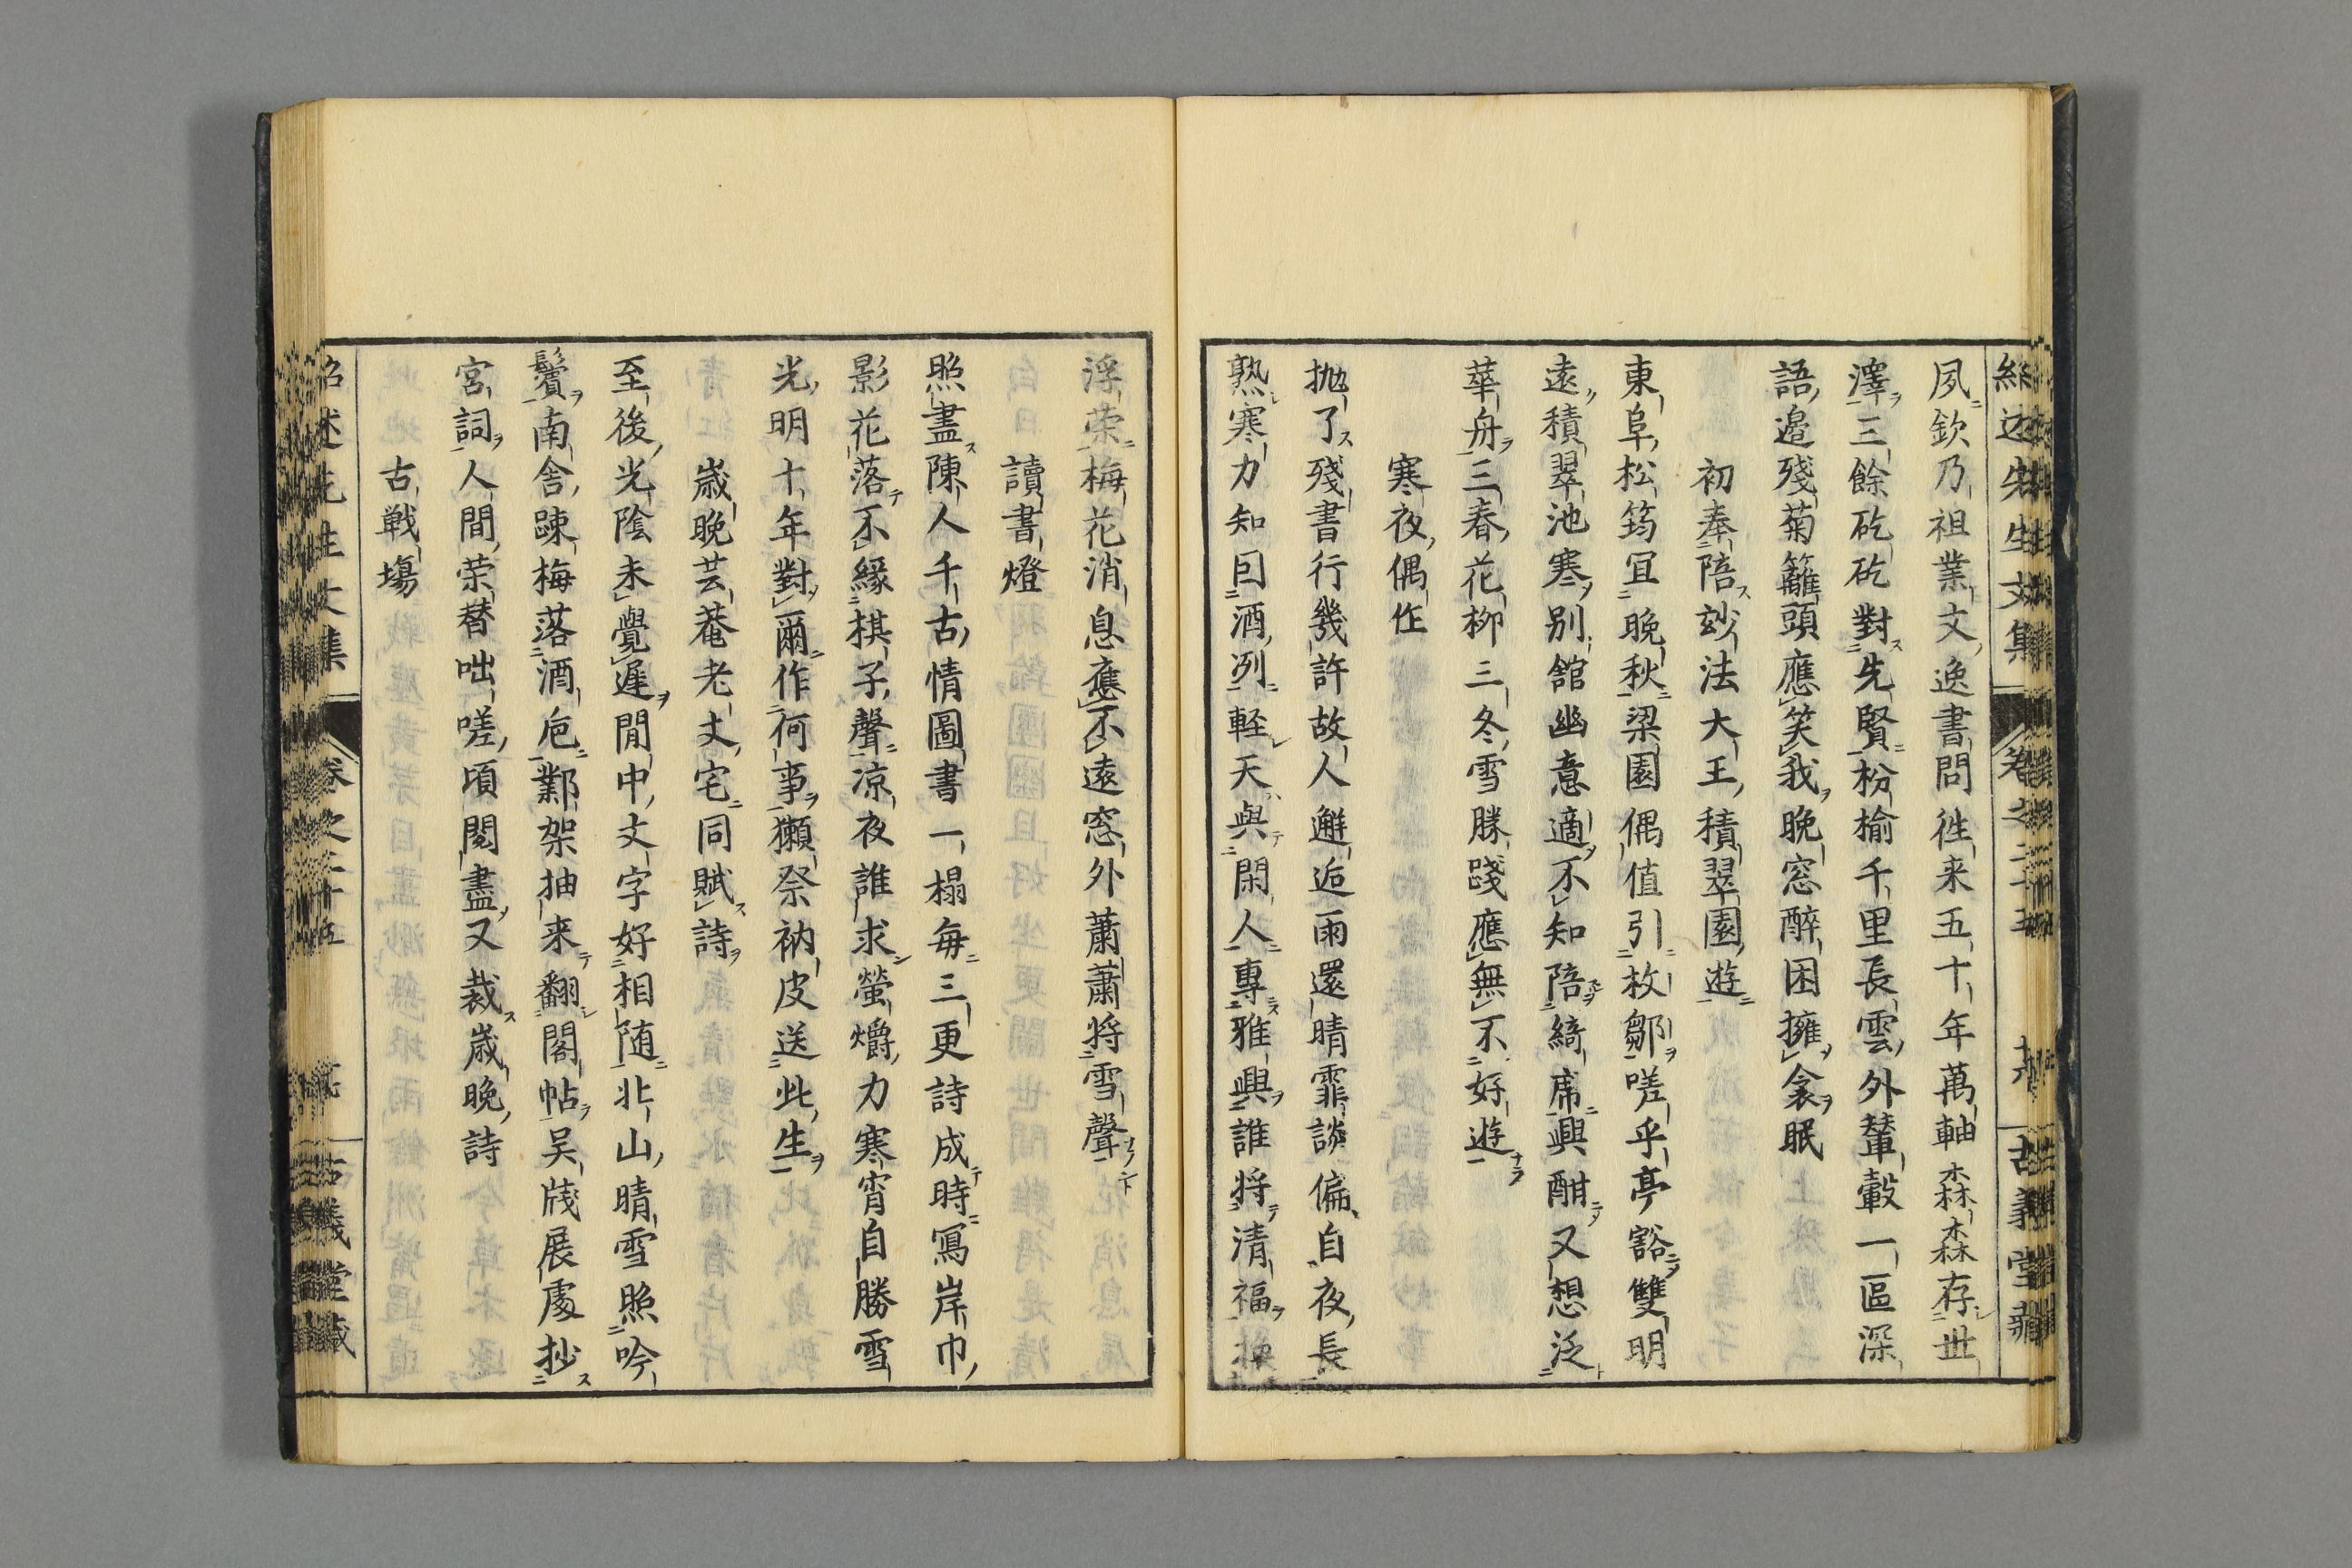 紹述先生文集 卷之二十五 古義堂藏
夙欽乃祖業文逸書問徃来五十年萬軸森森存世
澤三餘矻矻對先賢枌榆千里長雲外輦轂一區深
語邉殘菊籬頭應笑我晩窓醉困擁衾眠
初奉陪玅法大王積翠園遊
東阜松筠冝晩秋梁園偶值引枚鄒嗟乎亭豁雙明
遠積翠池寒别舘幽意適不知陪綺席興酣又想泛
華舟三春花柳三冬雪勝踐應無不好遊
寒夜偶作
抛了殘書行幾許故人邂逅雨還晴霏談偏自夜長
熟寒力知囙酒冽軽天與閑人專雅興誰将清福換
浮荣梅花消息應不遠窓外蕭蕭将雪聲
讀書燈
照盡陳人千古情圖書一榻每三更詩成時寫岸巾
影花落不緣棋子聲凉夜誰求螢爝力寒宵自勝雪
光明十年對爾作何事獺祭衲皮送此生
歳晩芸菴老丈宅同賦詩
至後光陰未覺遲閒中文字好相随北山晴雪照吟
鬢南舎踈梅落酒巵鄴架抽来翻閣帖吴牋展處抄
宮詞人間荣替咄嗟頃閱盡又裁歳晩詩
古戦塲
紹述先生文集 卷之二十五 古義堂藏